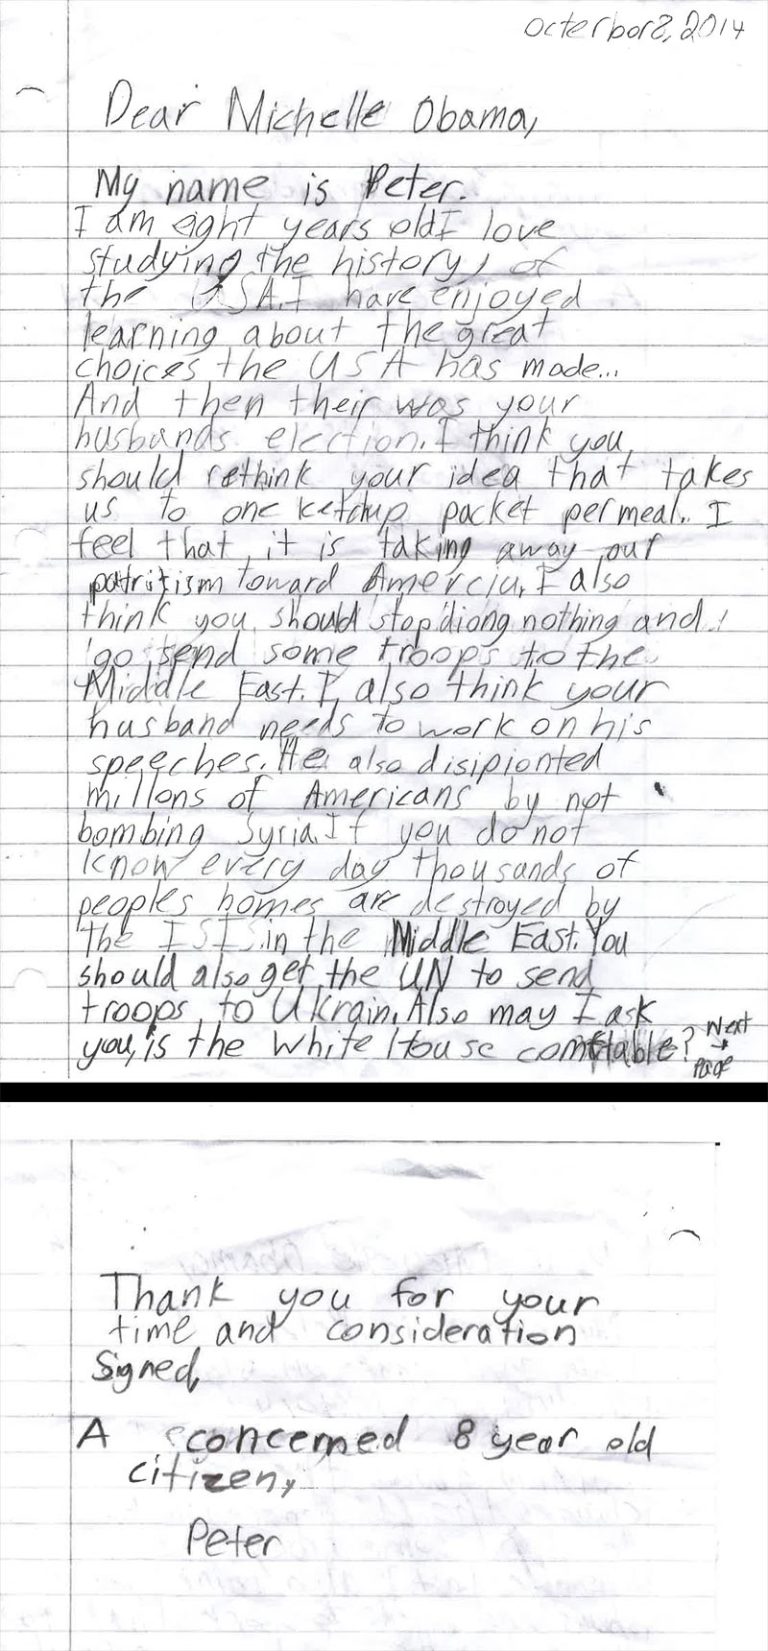 Octerbor 8, 2014
Dear Michelle Obama,
My name is Peter.
I am eight years old I love
studying the history, of
the USA. I have enjoyed
learning about the great
choices the USA has made...
And then their was your
husbands election. I think you
should rethink your idea that takes
us to one ketchup packet per meal. I
feel that it is taking away our
patritism toward Amercia. I also
think you should stop diong nothing and
go send some troops to the
Middle East. I also think your
husband needs to work on his
speeches. He also disipionted
millons of Americans by not
bombing Syria. If you do not
know every day thousands of
peoples homes are destroyed by
the ISIS in the Middle East. You
should also get the UN to send
troops to Ukrain. Also may I ask
you, is the White House comftable?
Next
→
page
Thank you for your
time and consideration
Signed,
A concerned 8 year old
citizen,
Peter